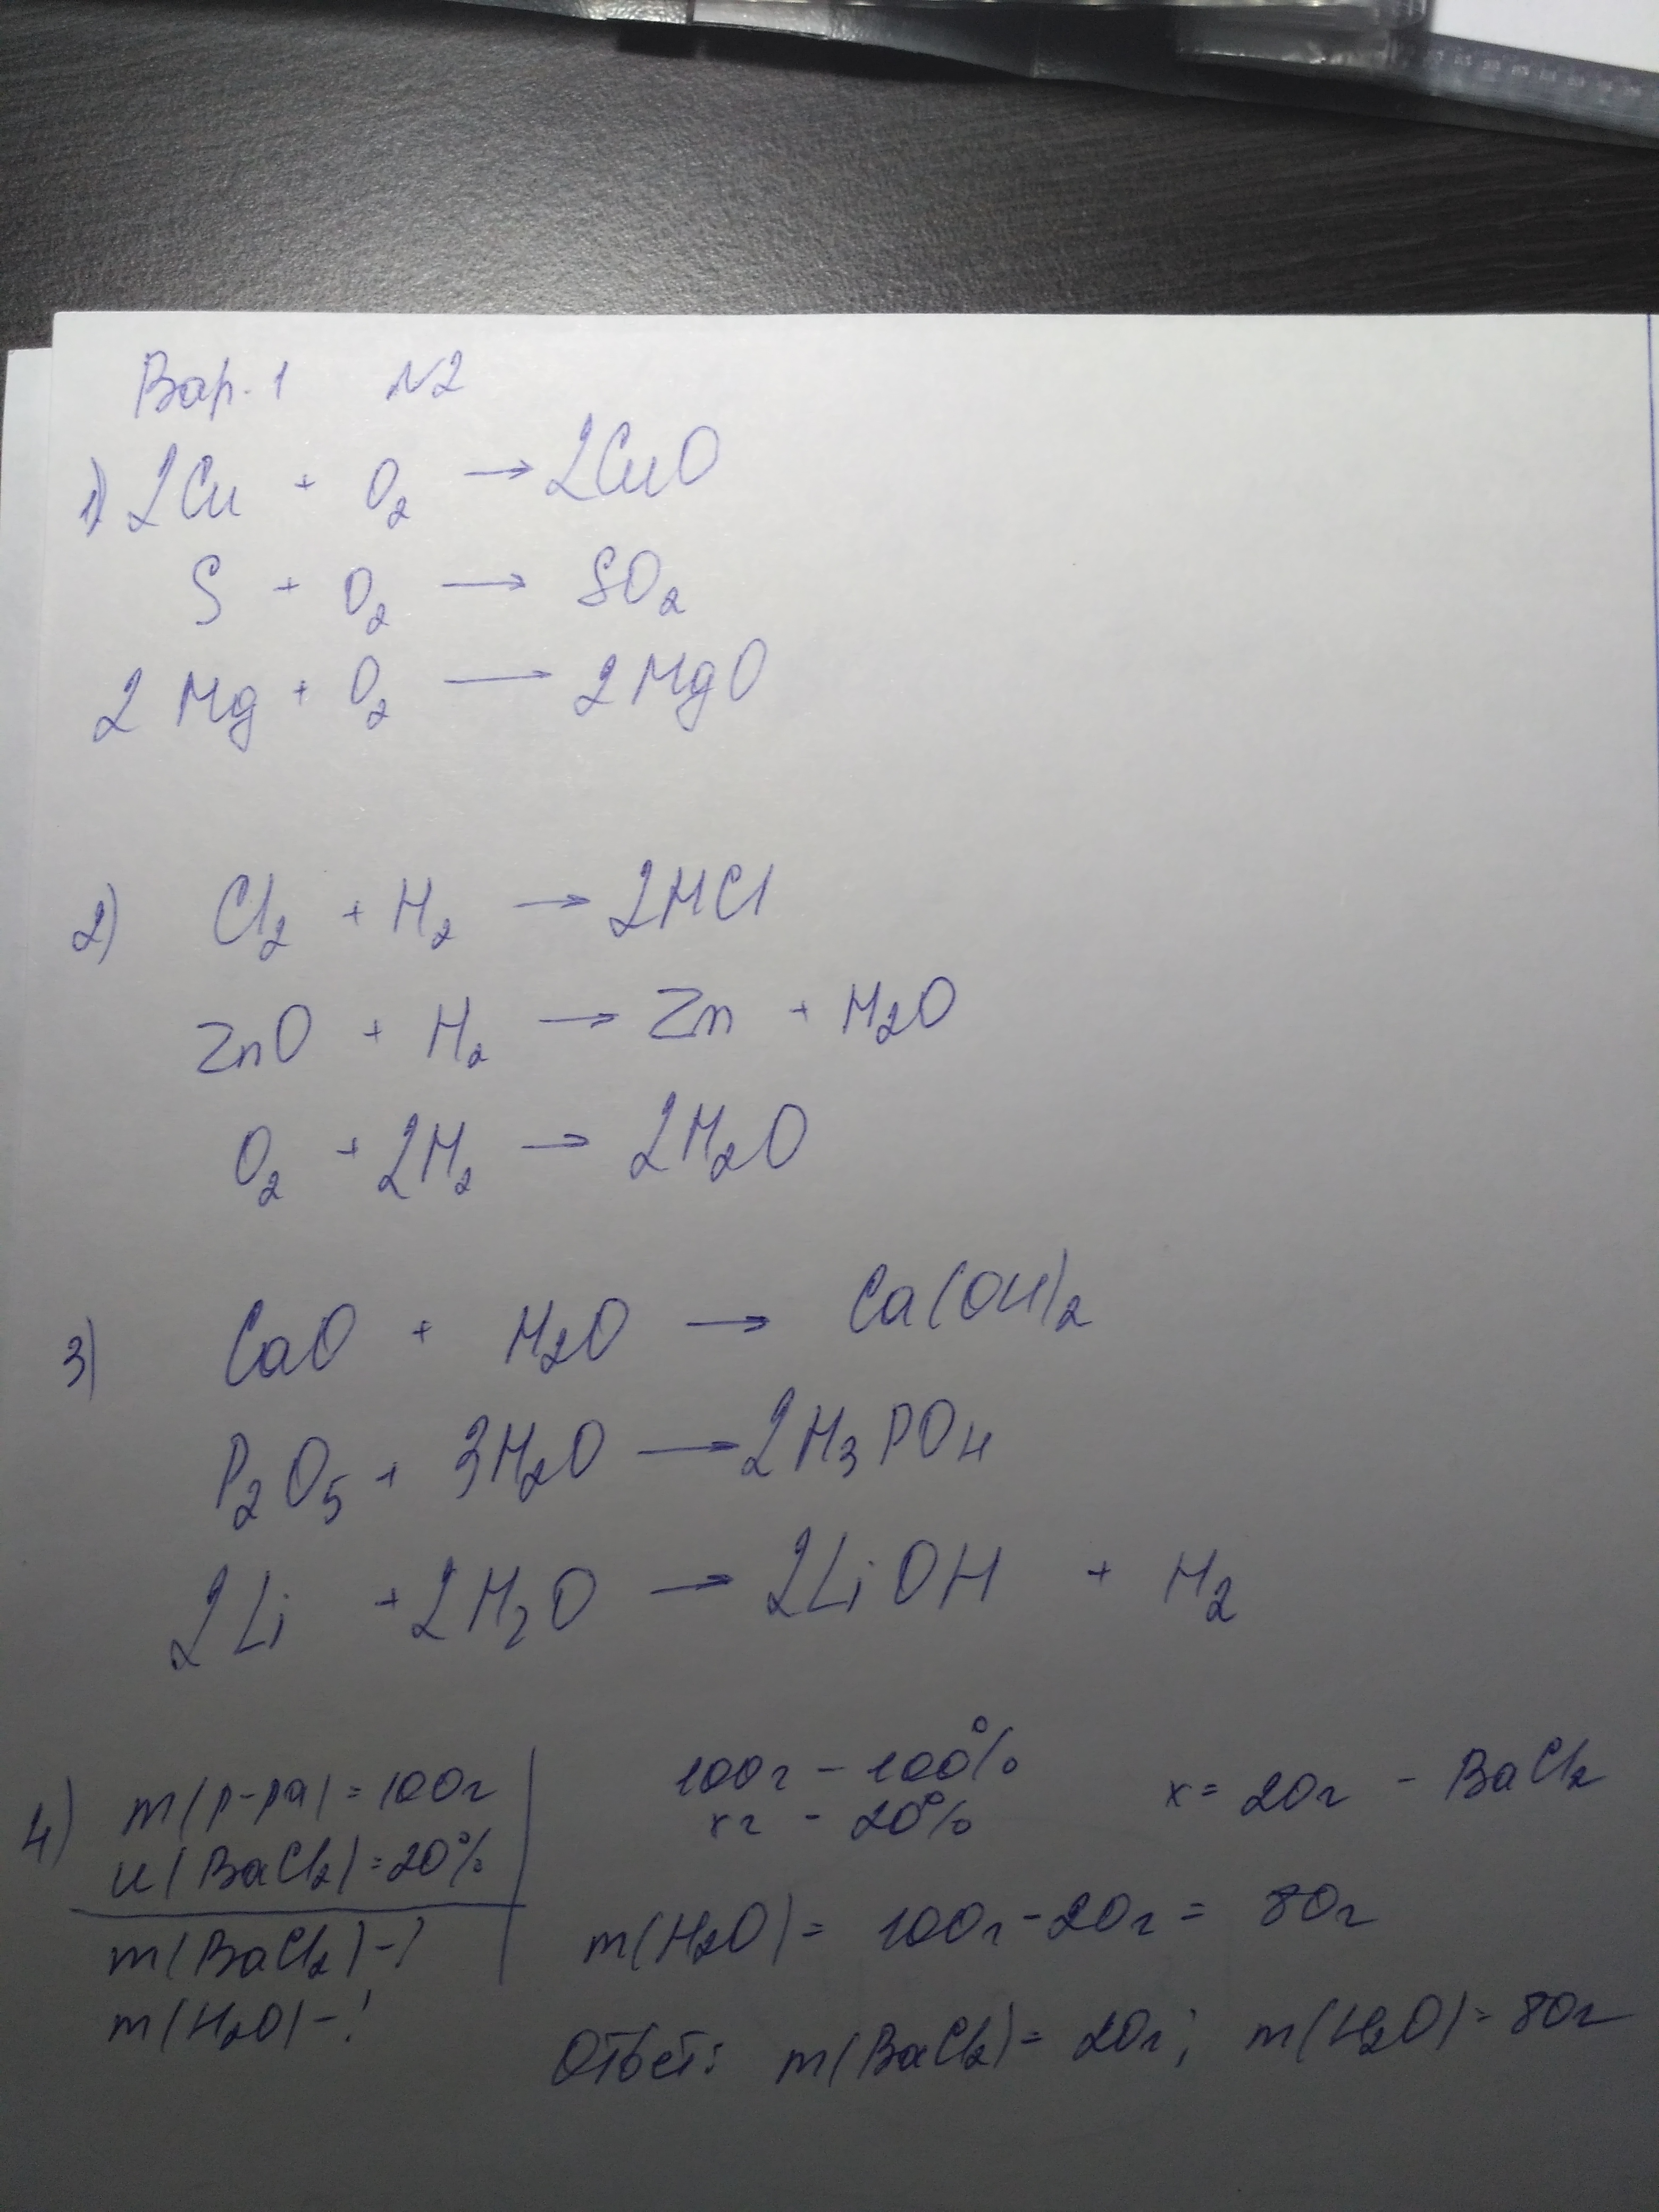 Вар. 1 N2
1) 2Cu + O₂ → 2CuO
S + O₂ → SO₂
2Mg + O₂ → 2MgO
2) Cl₂ + H₂ → 2HCl
ZnO + H₂ → Zn + H₂O
O₂ + 2H₂ → 2H₂O
3) CaO + H₂O → Ca(OH)₂
P₂O₅ + 3H₂O → 2H₃PO₄
2Li + 2H₂O → 2LiOH + H₂
4) m(р-ра) = 100г
100г - 100%
x = 20г - BaCl₂
xг - 20%
и(BaCl₂) = 20%
m(BaCl₂) - ?
m(H₂O) = 100г - 20г = 80г
m(H₂O) - ?
Ответ: m(BaCl₂) = 20г; m(H₂O) = 80г